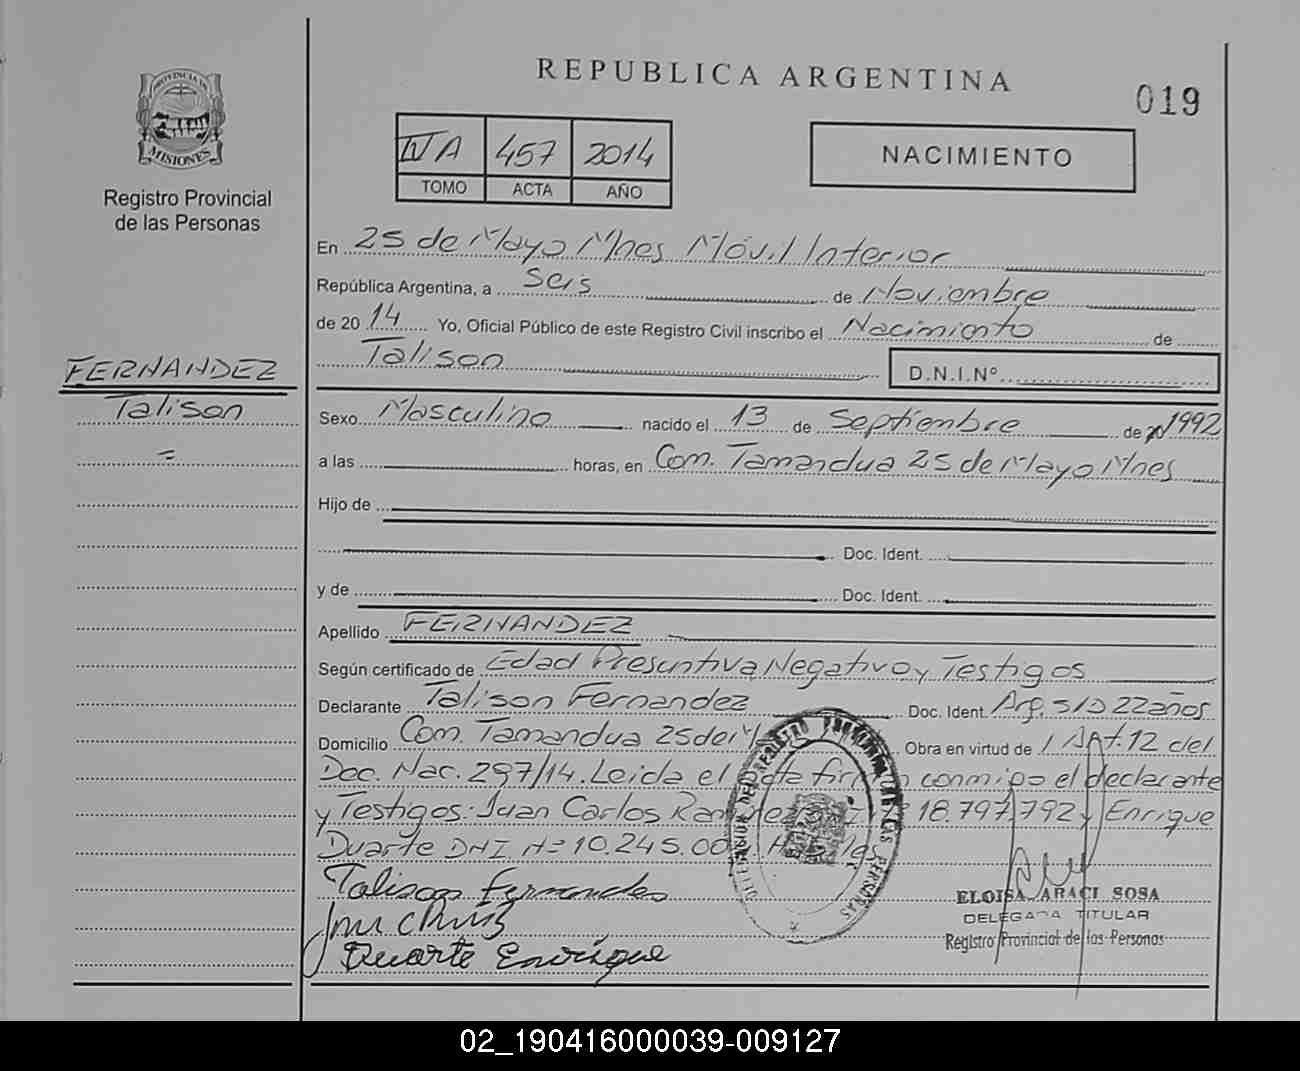 REPUBLICA ARGENTINA
019
PROVINCIA DE
MISIONES
Registro Provincial
de las Personas
IVA 457 2014
TOMO ACTA AÑO
NACIMIENTO
En 25 de Mayo Mnes Móvil Interior
República Argentina, a Seis de Noviembre
de 2014 Yo, Oficial Público de este Registro Civil inscribo el Nacimiento de
Talison D.N.I.Nº
FERNANDEZ
Talison
=
Sexo Masculino nacido el 13 de Septiembre de 1992
a las horas, en Com. Tamandua 25 de Mayo Mnes
Hijo de
Doc. Ident.
y de Doc. Ident.
Apellido FERNANDEZ
Según certificado de Edad Presuntiva, Negativo y Testigos
Declarante Talison Fernandez Doc. Ident. Arg. S/D 22 años
Domicilio Com. Tamandua 25 de M Obra en virtud de / Art. 12 del
Dec. Nac. 297/14. Leida el acta firman conmigo el declarante
y Testigos: Juan Carlos 18.797.792 y Enrique
Duarte DNI Nº 10.245.00
Talison Fernandes
Duarte Enrique
DELEGACION DEL REGISTRO PROVINCIAL DE LAS PERSONAS
ELOISA ARACI SOSA
DELEGADA TITULAR
Registro Provincial de las Personas
02_190416000039-009127